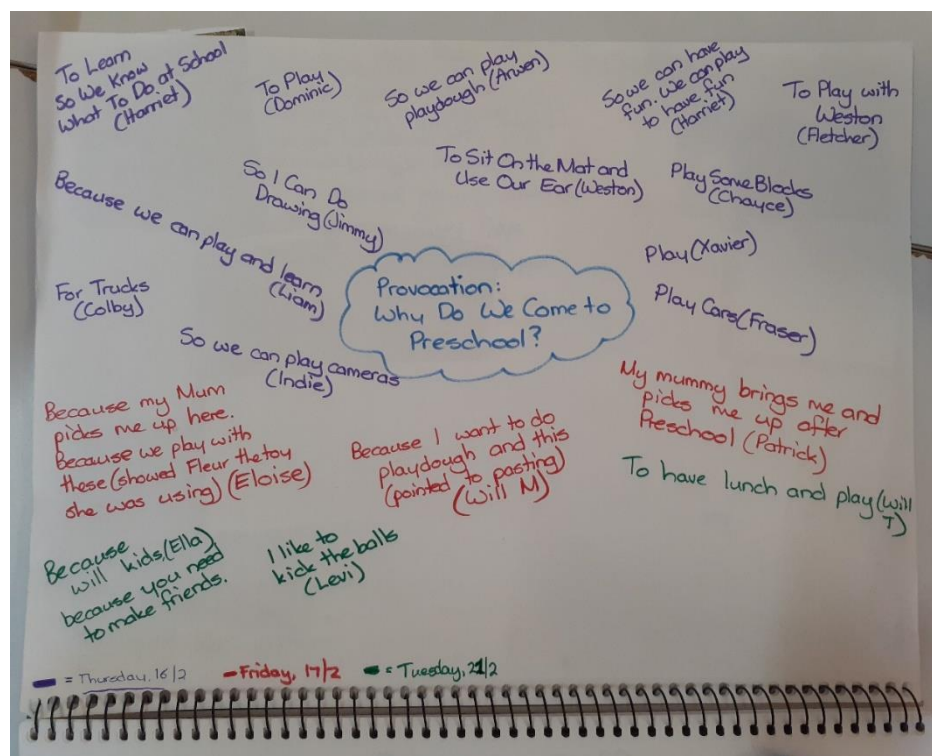 To Learn
So We Know
What To Do at School
(Harriet)
To Play
(Dominic)
So we can play
playdough (Arwen)
So we can have
fun. We can play
to have fun
(Harriet)
To Play with
Weston
(Fletcher)
Because we can play and learn
(Liam)
So I Can Do
Drawing (Jimmy)
To Sit On the Mat and
Use Our Ear (Weston)
Play Some Blocks
(Chayce)
Play (Xavier)
For Trucks
(Colby)
Provocation:
Why Do We Come to
Preschool?
Play Cars (Fraser)
So we can play cameras
(Indie)
Because my Mum
picks me up here.
Because we play with
these (showed Fleur the toy
she was using) (Eloise)
Because I want to do
playdough and this
(pointed to pasting)
(Will M)
My mummy brings me and
picks me up after
Preschool (Patrick)
To have lunch and play (Will
T)
Because
will kids, (Ella)
because you need
to make friends.
I like to
kick the balls
(Levi)
= Thursday, 16/2
- Friday, 17/2
= Tuesday, 21/2